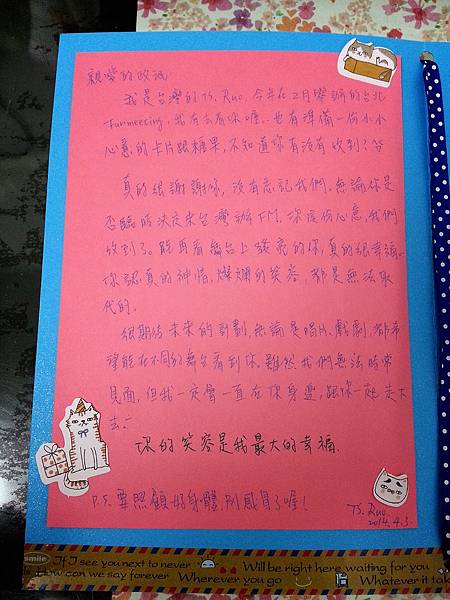 親愛的政珉
我是台灣的TS. Ruo. 今年在2月舉辦的台北
Fanmeeting, 我有去看你喔.. 也有準備一份小小
心意的卡片跟糖果, 不知道你有沒有收到? 
真的很謝謝你, 沒有忘記我們. 無論你是
否臨時決定來台灣辦FM, 你這份心意, 我們
收到了. 能再看舞台上發亮的你, 真的很幸福.
你認真的神情, 燦爛的笑容, 都是無法取
代的.
很期待未來的計劃, 無論是唱片, 戲劇, 都希
望能在不同的舞台看到你. 雖然我們無法時常
見面, 但我一定會一直在你身邊, 跟你一起走下
去..
你的笑容是我最大的幸福.
P.S. 要照顧好身體, 別感冒了喔!
TS. Ruo.
2014. 4.3.
smile If I see you next to never Will be right here waiting for you
How can we say forever Wherever you go Whatever it tak